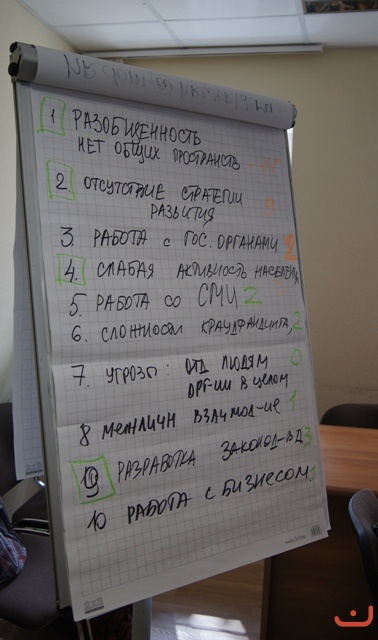 1 РАЗОБЩЕННОСТЬ
НЕТ ОБЩИХ ПРОСТРАНСТВ
2 ОТСУТСТВИЕ СТРАТЕГИИ
РАЗВИТИЯ
3. РАБОТА С ГОС. ОРГАНАМИ 1
4. СЛАБАЯ АКТИВНОСТЬ НАСЕЛЕНИЯ
5. РАБОТА СО СМИ 2
6. СЛОЖНОСТИ КРАУДФАНДИНГА, 2
7. УГРОЗЫ: ОТД ЛЮДЯМ 0
ОРГ-ИИ В ЦЕЛОМ
8 МЕЖЛИЧН ВЗАИМОД-ИЕ 1
9 РАЗРАБОТКА ЗАКОНОД-ВА 3
10 РАБОТА С БИЗНЕСОМ